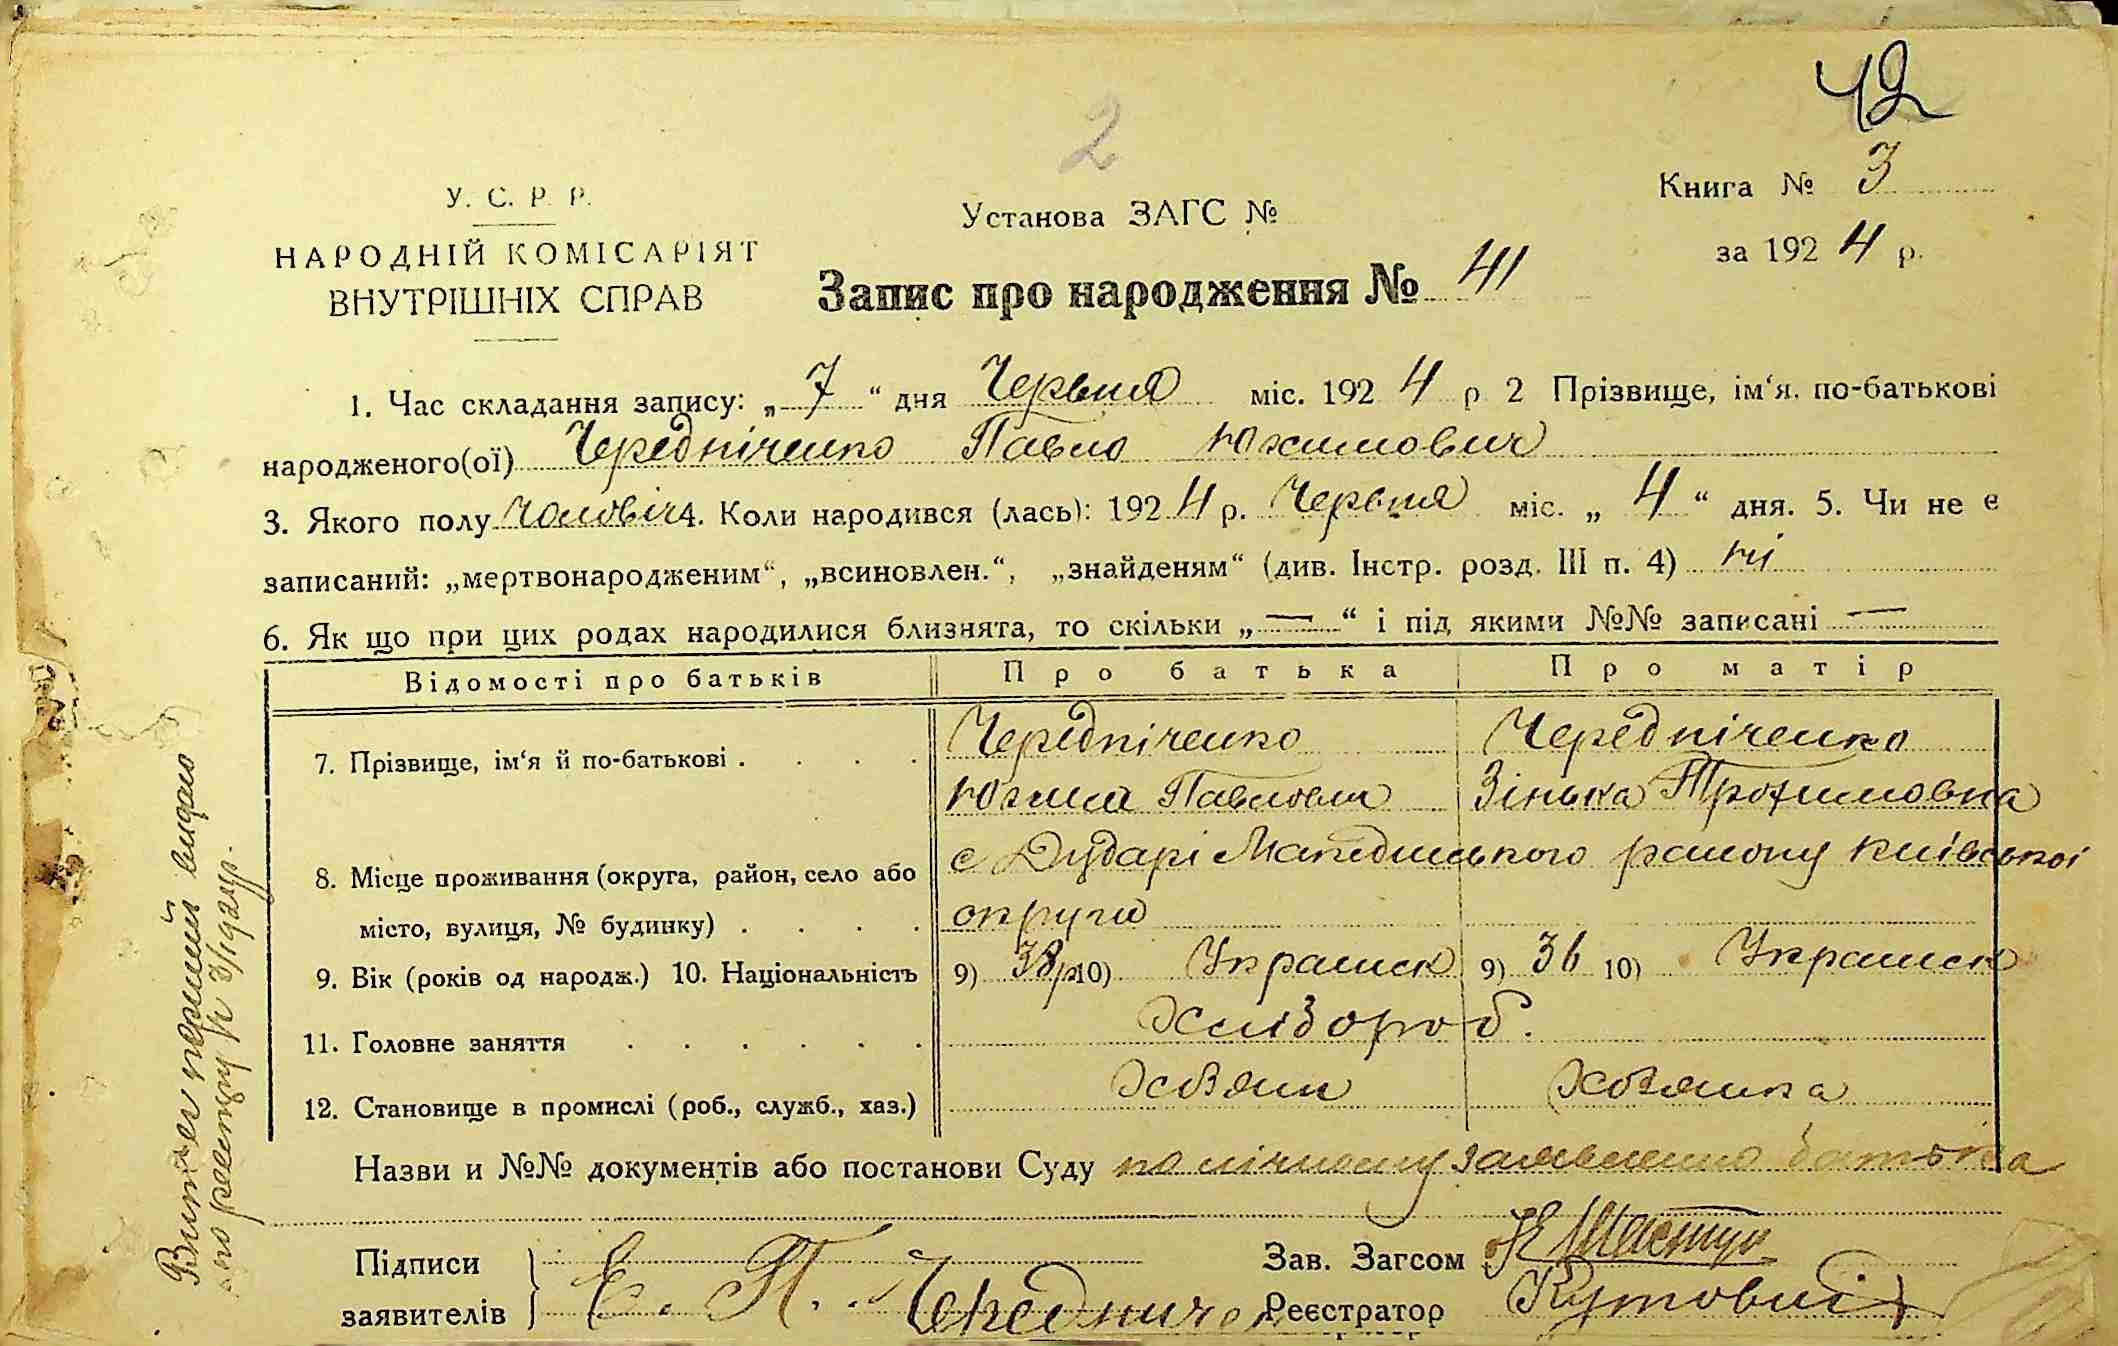 42
2
Книга № 3
У. С. Р. Р.
Установа ЗАГС №
за 1924 р.
НАРОДНІЙ КОМІСАРІЯТ
ВНУТРІШНІХ СПРАВ
Запис про народження № 41
1. Час складання запису: „7“ дня Червня міс. 1924 р 2 Прізвище, ім‘я. по-батькові
народженого(ої) Чередніченко Павло Юхимович
3. Якого полу чоловіч 4. Коли народився (лась): 1924 р. Червня міс. „4“ дня. 5. Чи не є
записаний: „мертвонародженим“, „всиновлен.“, „знайденям“ (див. Інстр. розд. III п. 4) ні
6. Як що при цих родах народилися близнята, то скільки „—“ і під якими №№ записані —
Відомості про батьків Про батька Про матір
7. Прізвище, ім‘я й по-батькові . . . . Чередніченко Чередніченко
Юхим Павлович Зінька Трохимовна
8. Місце проживання (округа, район, село або с Дударі Македонського району Київської
місто, вулиця, № будинку) . . . . округи
9. Вік (років од народж.) 10. Національність 9) 38р 10) Украинск 9) 36 10) Украинск
11. Головне заняття . . . . . . Хлібороб.
12. Становище в промислі (роб., служб., хаз.) Хозяин Хозяика
Назви и №№ документів або постанови Суду по лічному заявленню батька
Підписи
заявителів Е. П. Череднич
Зав. Загсом
Реєстратор Кутовий
Витяг перший видано
по реєстру № 3/1924р.